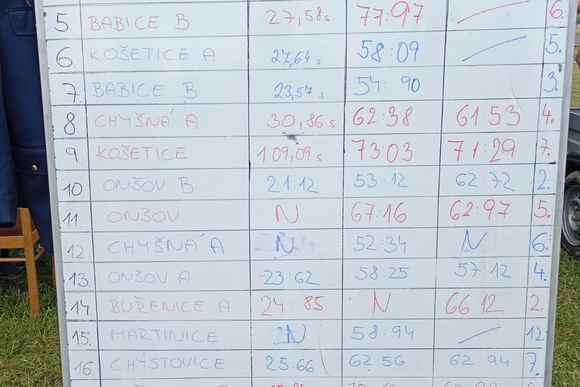 5. BABICE B 27,58s 77:97 6.
6. KOŠETICE A 27,64s 58:09 5.
7. BABICE B 23,57s 54 90 3.
8 CHYŠNÁ A 30,86s 62:38 61 53 4.
9 KOŠETICE 1 09,09s 73:03 71:29 7.
10 ONŠOV B 21:12 53:12 62 72 2.
11 ONŠOV N 67:16 62:97 5.
12 CHYŠNÁ A N 52:34 N 6.
13. ONŠOV A 23:62 58:25 57 12 4.
14 BUŘENICE A 24 85 N 66 12 2.
15. MARTINICE N 58:94 12
16. CHÝSTOVICE 25:66 62 56 62 94 7.